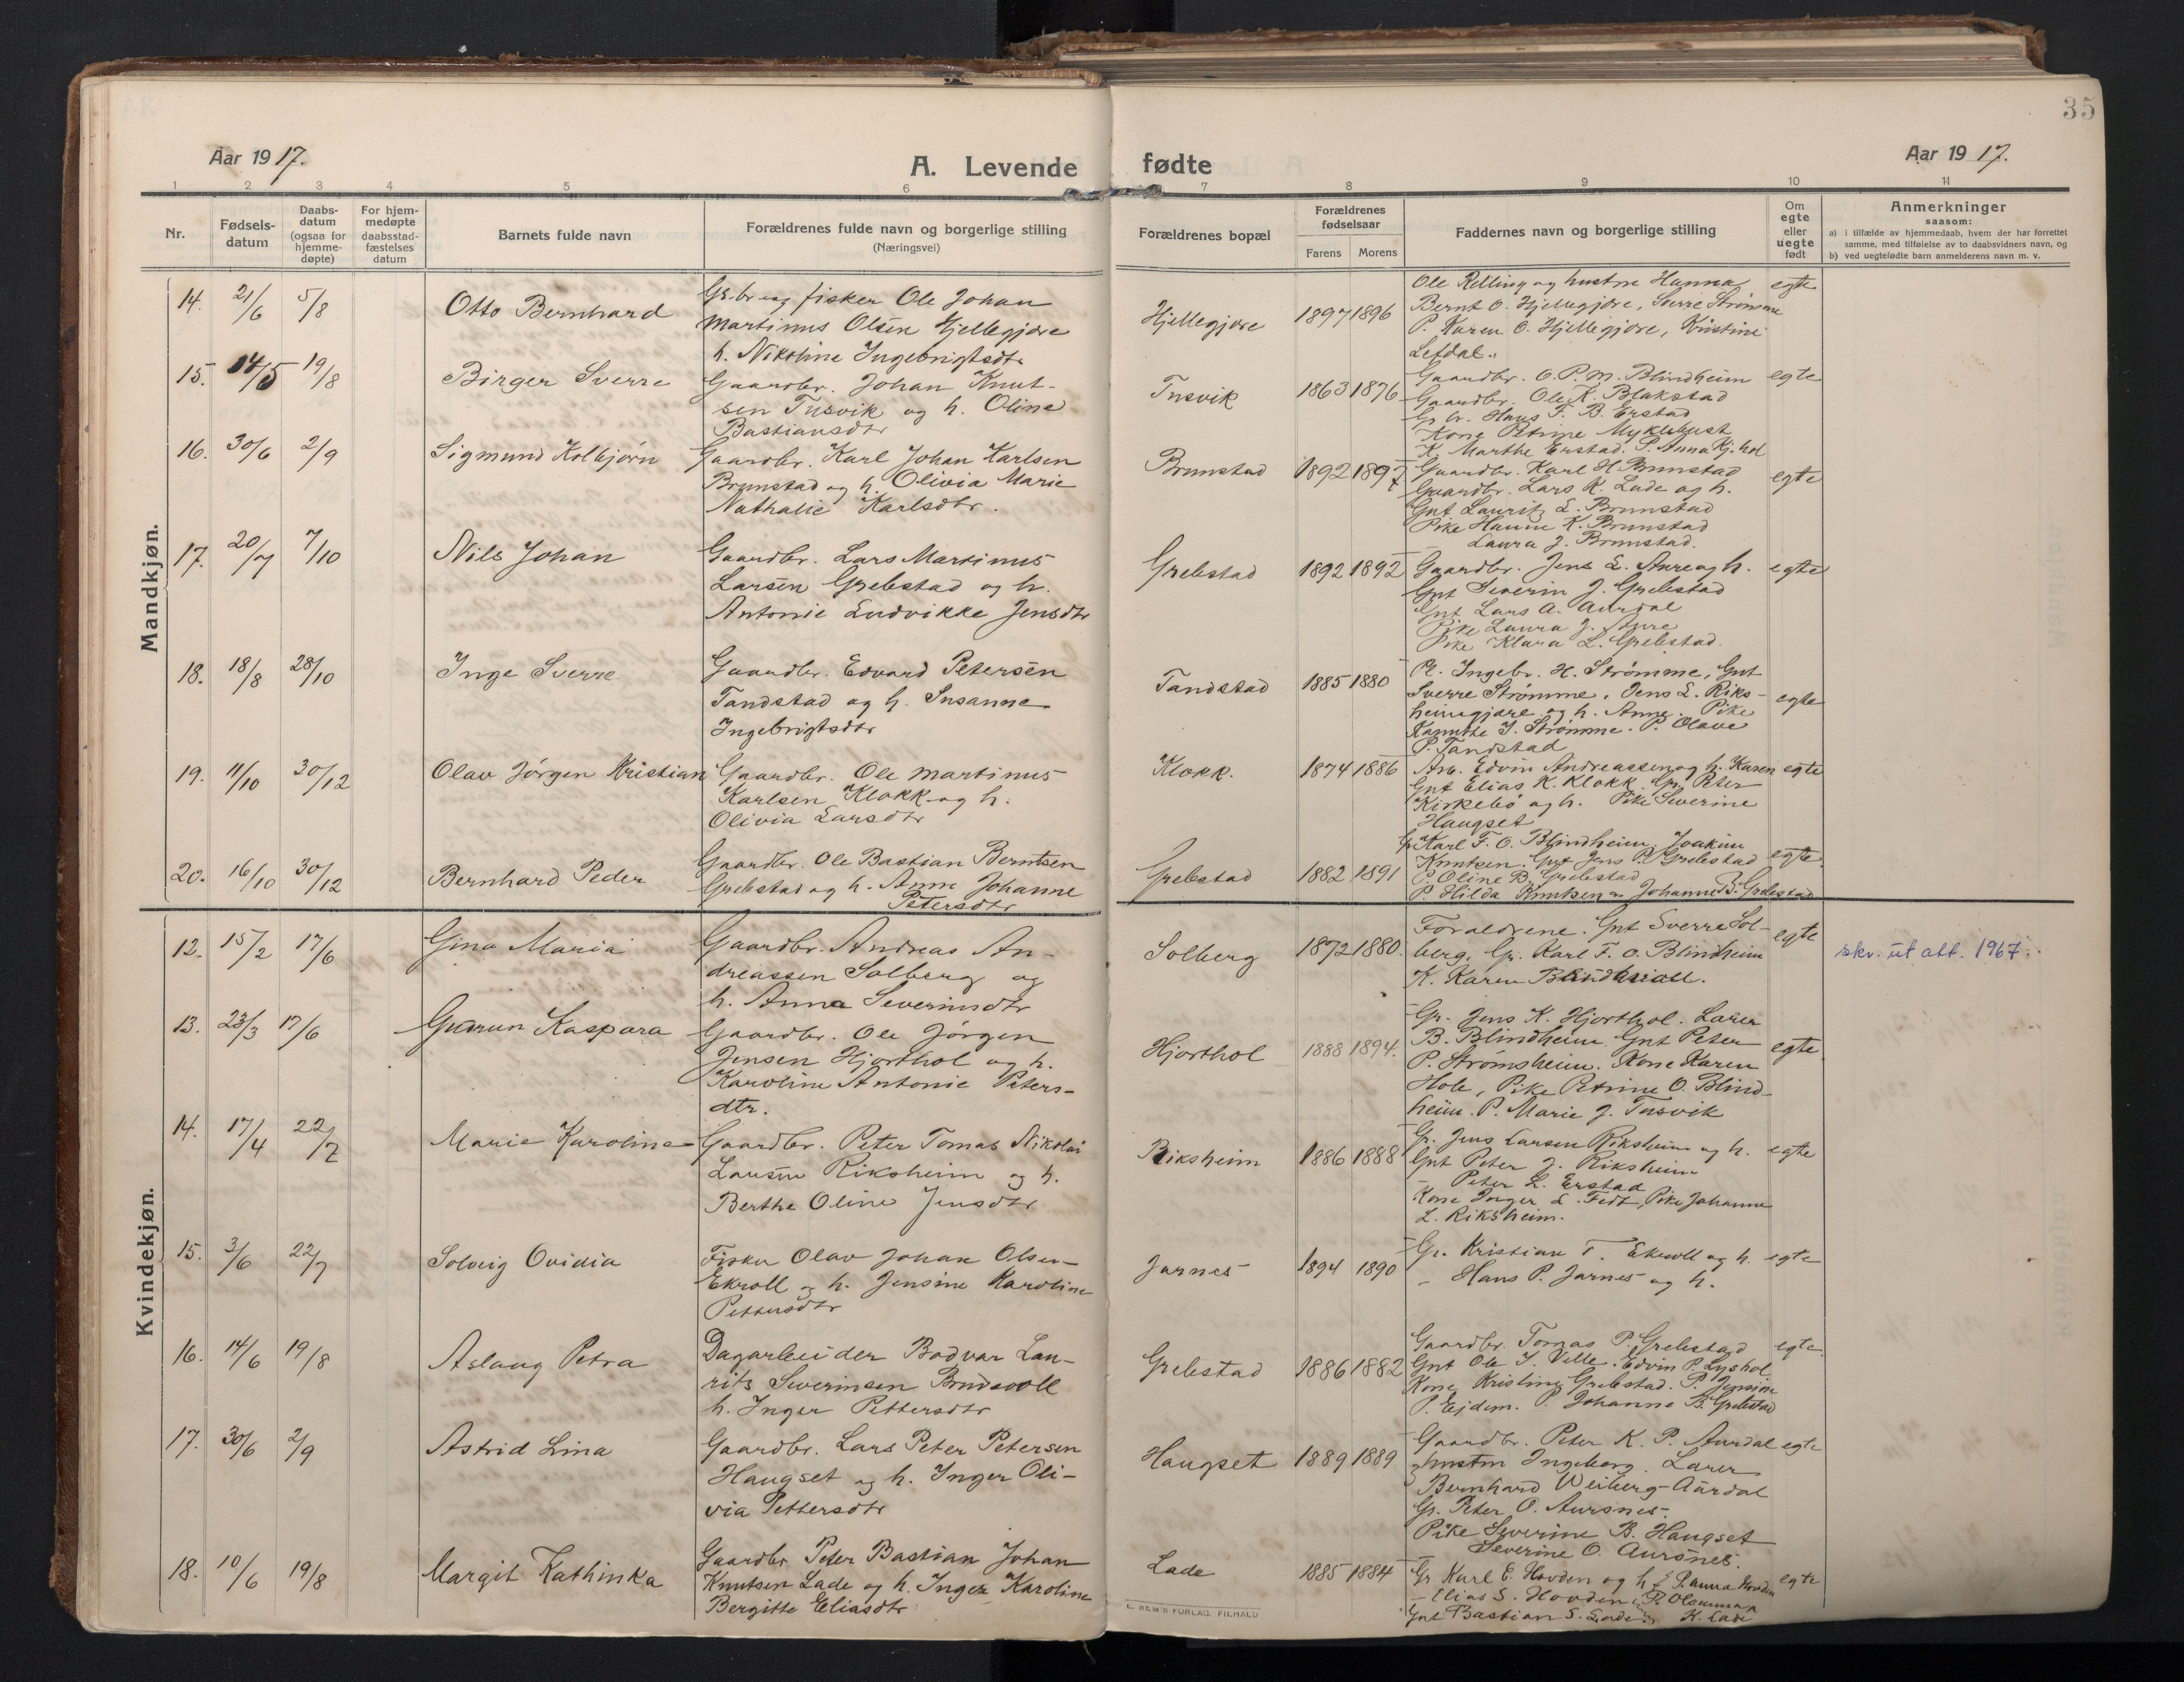 35
Aar 1917.
A. Levende fødte
Aar 1917.
1 2 3 4 5 6 7 8 9 10 11
Nr.
Fødsels-
datum
Daabs-
datum
(ogsaa for
hjemme-
døpte)
For hjem-
medøpte
daabsstad-
fæstelses
datum
Barnets fulde navn
Forældrenes fulde navn og borgerlige stilling
(Næringsvei)
Forældrenes bopæl
Forældrenes
fødselsaar
Farens Morens
Faddernes navn og borgerlige stilling
Om
egte
eller
uegte
født
Anmerkninger
saasom:
a) i tilfælde av hjemmedaab, hvem der har forrettet
samme, med tilføielse av to daabsvidners navn, og
b) ved uegtefødte barn anmelderens navn m. v.
Mandkjøn.
14. 21/6 5/8 Otto Bernhard
Gbr. og fisker Ole Johan
Martinus Olsen Hjellegjøre
h. Nikoline Ingebrigtsdtr
Hjellegjøre 1897 1896
Ole Relling og hustru Hanna
Bernt O. Hjellegjøre, Sverre Strømme
P. Karen O. Hjellegjøre, Kristine
Lefdal.
egte
15. 14/5 19/8 Birger Sverre
Gaardbr. Johan Knut-
sen Tusvik og h. Oline
Bastiansdtr
Tusvik 1863 1876
Gaardbr. O. P. M. Blindheim
Gaardbr. Ole K. Blakstad
Gbr. Hans F. B. Erstad
Kone Petrine Myklebust
K. Marthe Erstad. P. Anna Kj. hol
egte
16. 30/6 2/9 Sigmund Kolbjørn
Gaardbr. Karl Johan Karlsen
Brunstad og h. Olivia Marie
Nathalie Karlsdtr.
Brunstad 1892 1897
Gaardbr. Karl H. Brunstad
Gaardbr. Lars K. Lade og h.
Gut Lauritz L. Brunstad
Pike Hanna K. Brunstad
Laura J. Brunstad.
egte
17. 20/7 7/10 Nils Johan
Gaardbr. Lars Martinus
Larsen Grebstad og h.
Antonie Ludvikke Jensdtr
Grebstad 1892 1892
Gaardbr. Jens L. Aure og h.
Gut Severin J. Grebstad
Gut Lars A. Aurdal
Pike Laura J. Aure
Pike Klara L. Grebstad.
egte
18. 18/8 28/10 Inge Sverre
Gaardbr. Edvard Petersen
Tandstad og h. Susanne
Ingebrigtsdtr
Tandstad 1885 1880
Gr. Ingebr. H. Strømme, Gut
Sverre Strømme, Jens L. Riks-
heimgjære og h. Anne. Pike
Kanutte I. Strømme. P. Olave
P. Tandstad
egte
19. 11/10 30/12 Olav Jørgen Kristian
Gaardbr. Ole Martinus
Karlsen Klokk og h.
Olivia Larsdtr
Klokk. 1874 1886
Arb. Edvin Andreassen og h. Karen
Gut Elias K. Klokk. Gr. Peter
Kirkebø og h. Pike Severine
Haugset
egte
20. 16/10 30/12 Bernhard Peder
Gaardbr. Ole Bastian Berntsen
Grebstad og h. Anne Johanne
Petersdtr
Grebstad 1882 1891
Gr Karl F. O. Blindheim, Joakim
Knutsen. Gut Jens P. Grebstad
P. Oline B. Grebstad
P. Hilda Knutsen Johanne B. Grebstad
egte
Kvindekjøn.
12. 15/2 17/6 Gina Maria
Gaardbr. Andreas An-
dreassen Solberg og
h. Anna Severinsdtr
Solberg 1872 1880.
Forældrene. Gut Sverre Sol-
berg, Gr. Karl F. O. Blindheim
K. Karen
egte
skr. ut att. 1967.
13. 23/3 17/6 Gudrun Kaspara
Gaardbr. Ole Jørgen
Jensen Hjorthol og h.
Karoline Antonie Peters-
dtr.
Hjorthol 1888 1894.
Gr. Jens K. Hjorthol. Lærer
B. Blindheim. Gut Peter
P. Strømsheim. Kone Karen
Hole, Pike Petrine O. Blind-
heim. P. Marie J. Tusvik
egte
14. 17/4 22/7 Marie Karoline
Gaardbr. Peter Tomas Nikolai
Larsen Riksheim og h.
Berthe Oline Jensdtr
Riksheim 1886 1888
Gr. Jens Larsen Riksheim og h.
Gut Peter J. Riksheim
– Peter L. Erstad
Kone Inger L. Fedt, Pike Johanne
L. Riksheim.
egte
15. 3/6 22/7 Solveig Ovidia
Fisker Olav Johan Olsen
Ekroll og h. Jensine Karoline
Pettersdtr
Jarnes 1894 1890
Gr. Kristian T. Ekroll og h.
– Hans P. Jarnes og h.
egte
16. 14/6 19/8 Aslaug Petra
Dagarbeider Bodvar Lau-
rits Severinsen Brudevoll
h. Inger Pettersdtr
Grebstad 1886 1882
Gaardbr. Tomas P. Grebstad
Gut Ole J. Velle. Edvin P. Lyshol
Kone Kristine Grebstad. P. Jensine
P. Ejdem. P. Johanne B. Grebstad
egte
17. 30/6 2/9 Astrid Lina
Gaardbr. Lars Peter Petersen
Haugset og h. Inger Oli-
via Pettersdtr
Haugset 1889 1889
Gaardbr. Peter K. P. Aurdal
hustru Ingeborg. Lærer
Bernhard Weiberg-Aurdal
Gr. Peter O. Aursnes.
Pike Severine B. Haugset
Severine O. Aursnes.
egte
18. 10/6 19/8 Margit Kathinka
Gaardbr Peter Bastian Johan
Knutsen Lade og h. Inger Karoline
Bergitte Eliasdtr
Lade 1885 1884
Gr Karl E. Hovden og h. P. Anna Hovden
– Elias S. Hovden
Gut Bastian S. Lade K. Lade
egte